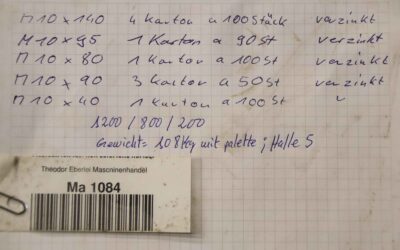 M10 x 140 4 Karton a 100 Stück verzinkt
M10 x 95 1 Karton a 90 St verzinkt
M10 x 80 1 Karton a 100 St verzinkt
M10 x 90 3 Karton a 50 St verzinkt
M10 x 40 1 Karton a 100 St "
1200 / 800 / 200
Gewicht = 108 Kg mit palette ; Halle 5
Theodor Eberlei Maschinenhandel
Ma 1084